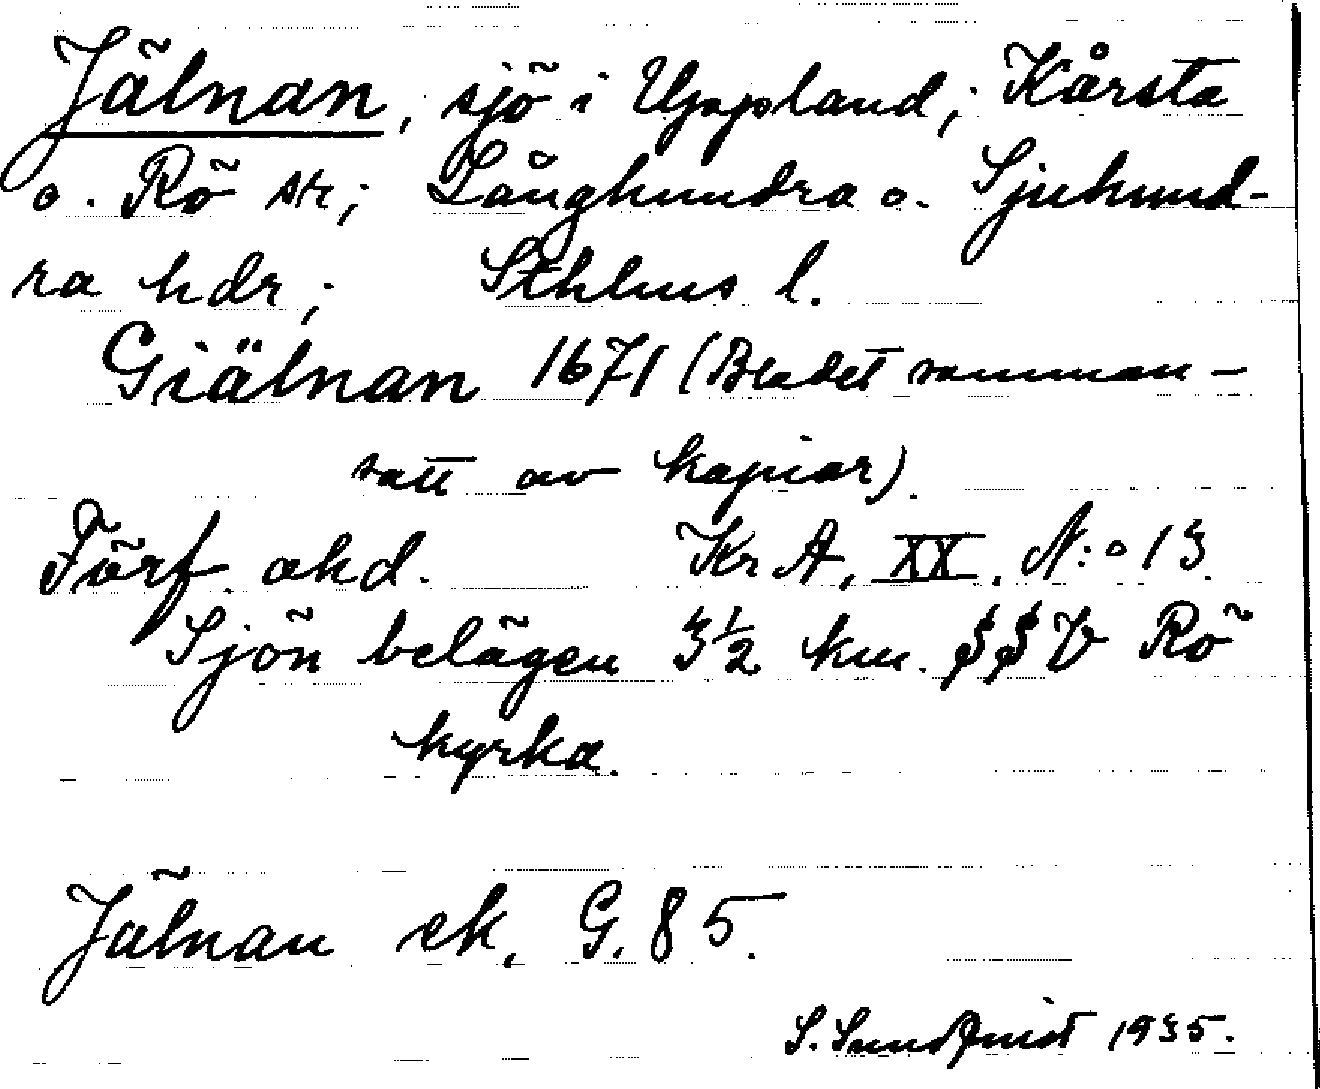 Jälnan, sjö i Uppland; Kårsta
o. Rö skr; Långhundra o. Sjuhund-
ra hdr; Sthlms l.
Giälnan 1671 (Bladet samman-
satt av kopior).
Förf. okd. Kr A, XX, N:o 13.
Sjön belägen 3½ km. SSV Rö
kyrka.
Jälnan ek. G. 85.
S. Sundquist 1935.